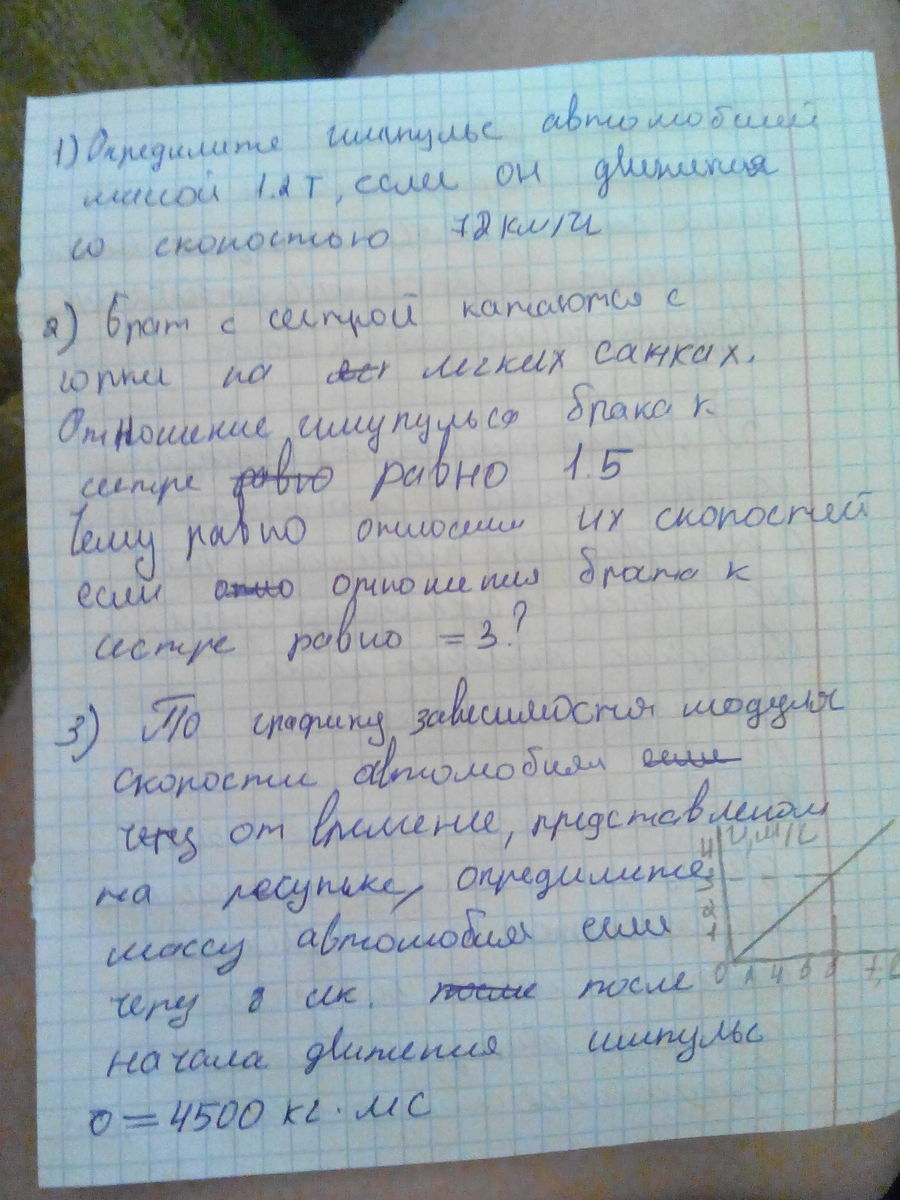 1) Определите импульс автомобилей
массой 1.2 т, если он движется
со скоростью 72 км/ч
2) брат с сестрой катаются с
горки на легких санках.
Отношение импульса брата к
сестре равно 1.5
Чему равно их скоростей
если отношения брата к
сестре равно = 3?
3) По графику зависимостя модуля
скорости автомобиля
от времение, представленом
на рисунке, определите
массу автомобия если
через 8 сек. после
начала движения импульс
= 4500 кг. мс
V, м/с
4
3
2
1
0 2 4 6 8 t, c